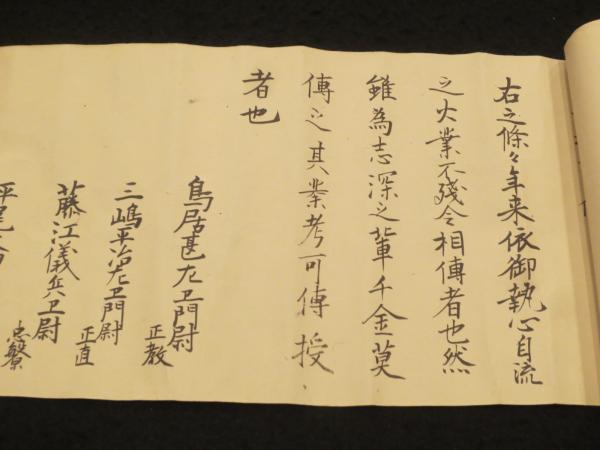 右之條々年来依御執心自流
之火業不残令相傳者也然
雖為志深之輩千金莫
傳之其業考可傳授
者也
鳥居甚左卫門尉
正教
三嶋平治左卫門尉
正直
藤江儀兵卫尉
忠繁
平尾